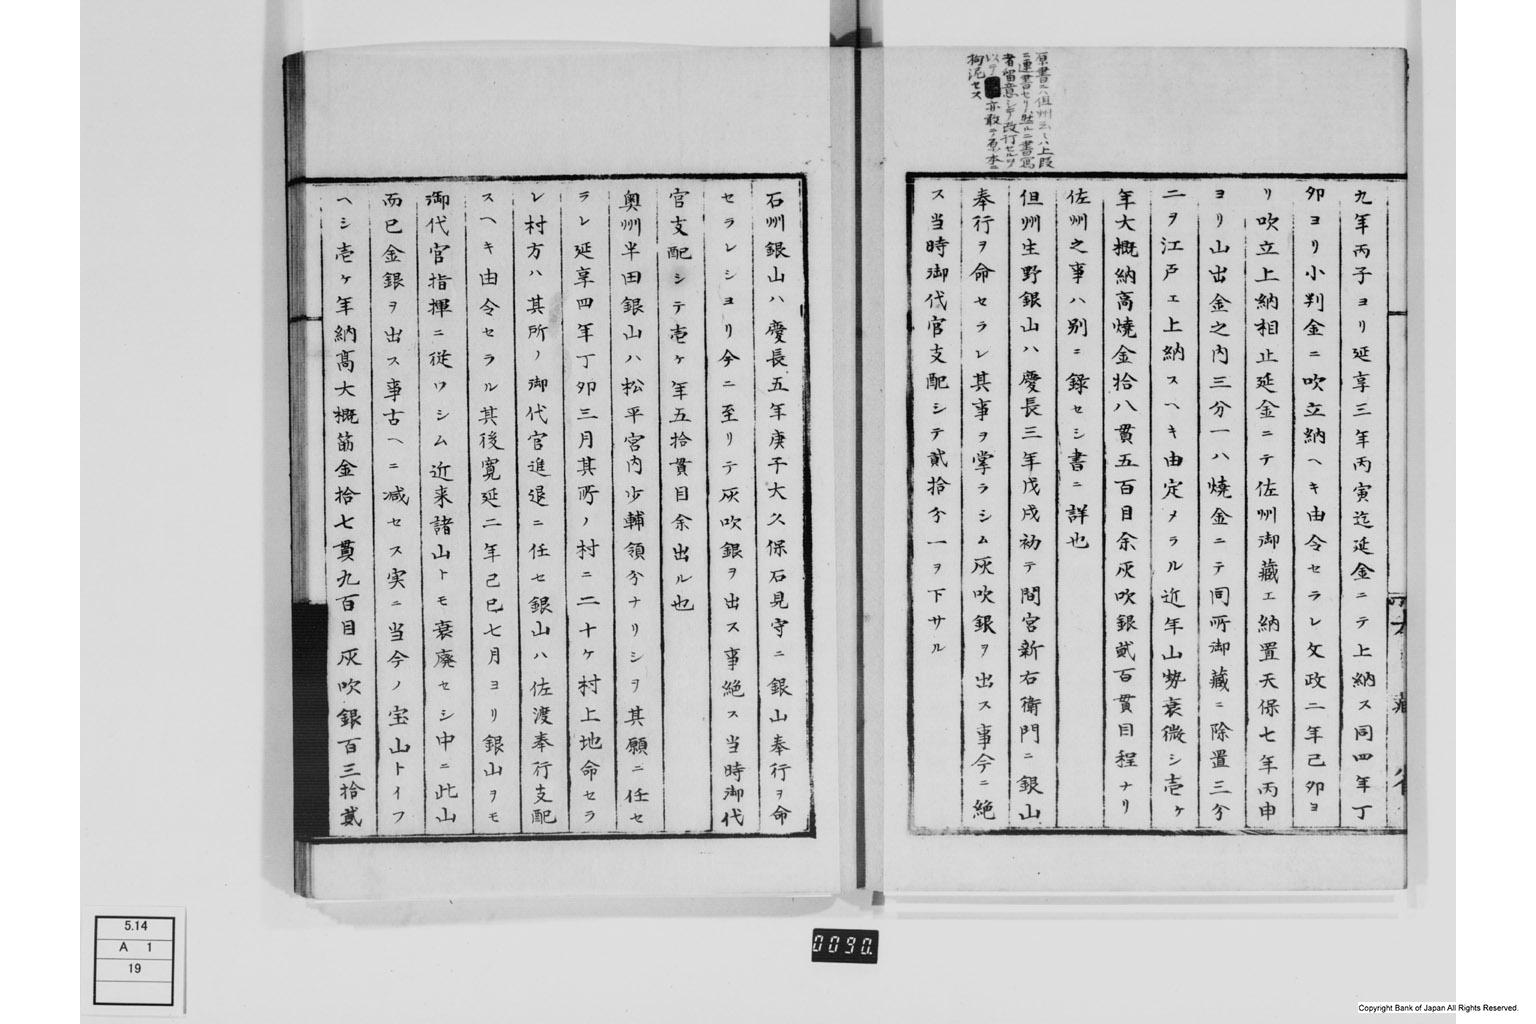 原書ニハ但州云々ハ上段
ニ連書セリ然ルニ書寫
者留意シテ改行セルヲ
以テ亦敢テ原本ニ
拘泥セス
九年丙子ヨリ延享三年丙寅迄延金ニテ上納ス同四年丁
卯ヨリ小判金ニ吹立納ヘキ由令セラレ文政二年己卯ヨ
リ吹立上納相止延金ニテ佐州御藏エ納置天保七年丙申
ヨリ山出金之内三分一ハ焼金ニテ同所御藏ニ除置三分
二ヲ江戸エ上納スヘキ由定メラル近年山勢衰微シ壱ケ
年大概納高焼金拾八貫五百目余灰吹銀貳百貫目程ナリ
佐州之事ハ別ニ録セシ書ニ詳也
但州生野銀山ハ慶長三年戊戌初テ間宮新右衛門ニ銀山
奉行ヲ命セラレ其事ヲ掌ラシム灰吹銀ヲ出ス事今ニ絶
ス当時御代官支配シテ貳拾分一ヲ下サル
石州銀山ハ慶長五年庚子大久保石見守ニ銀山奉行ヲ命
セラレシヨリ今ニ至リテ灰吹銀ヲ出ス事絶ス当時御代
官支配シテ壱ケ年五拾貫目余出ル也
奥州半田銀山ハ松平宮内少輔領分ナリシヲ其願ニ任セ
ラレ延享四年丁卯三月其所ノ村ニ二十ケ村上地命セラ
レ村方ハ其所ノ御代官進退ニ任セ銀山ハ佐渡奉行支配
スヘキ由令セラル其後寛延二年己巳七月ヨリ銀山ヲモ
御代官指揮ニ従ワシム近来諸山トモ衰廃セシ中ニ此山
而已金銀ヲ出ス事古ヘニ減セス実ニ当今ノ宝山トイフ
ヘシ壱ケ年納高大概筋金拾七貫九百目灰吹銀百三拾貳
5.14
A 1
19
0090.
Copyright Bank of Japan All Rights Reserved.